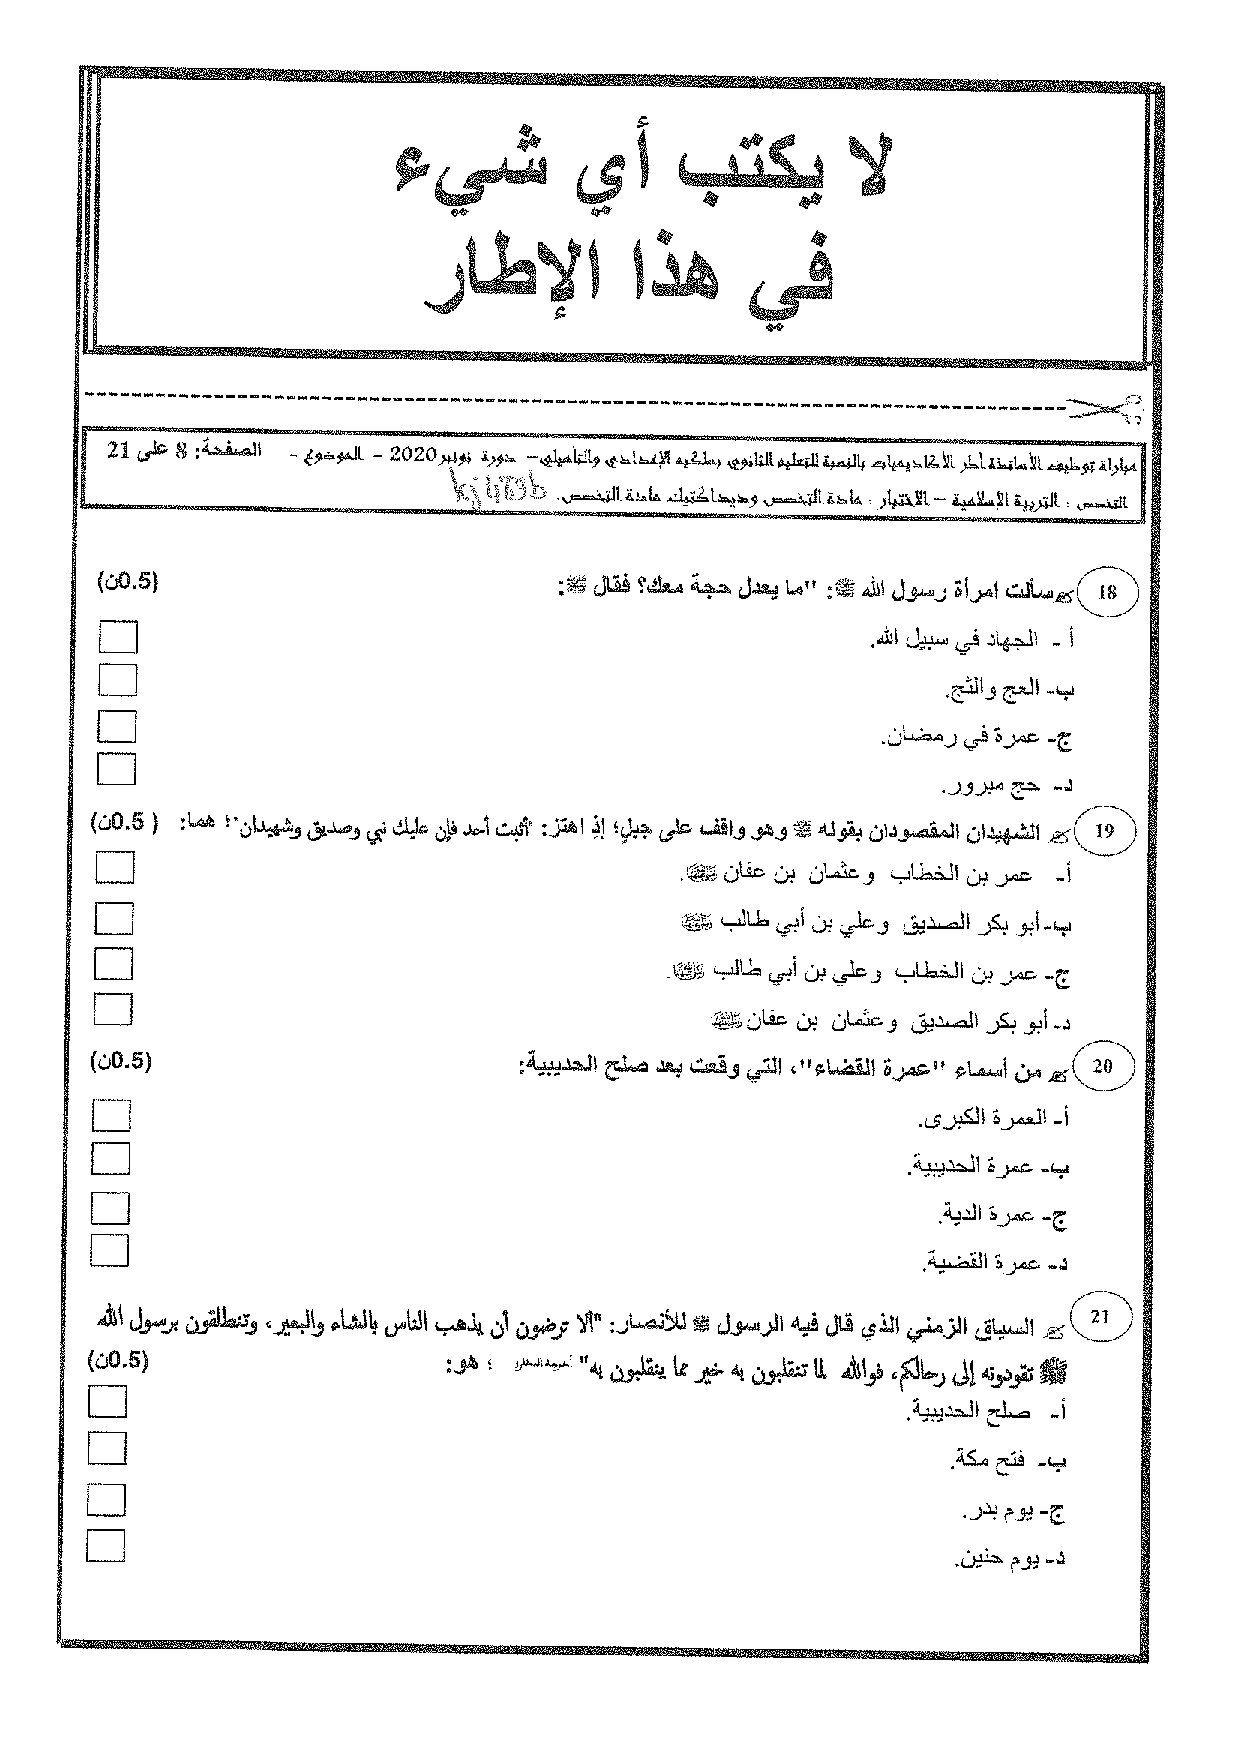 لا يكتب أي شيء
في هذا الإطار
مباراة توظيف الأساتذة أطر الأكاديميات بالنسبة للتعليم الثانوي بسلكيه الإعدادي والتأهيلي– دورة نونبر2020 – الموضوع - الصفحة: 8 على 21
التخصص : التربية الإسلامية – الاختبار : مادة التخصص وديداكتيك مادة التخصص.
18 سألت امرأة رسول الله ﷺ: "ما يعدل حجة معك؟ فقال ﷺ: (0.5ن)
أ - الجهاد في سبيل الله.
ب- العج والثج.
ج- عمرة في رمضان.
د- حج مبرور.
19 الشهيدان المقصودان بقوله ﷺ وهو واقف على جبل؛ إذ اهتز: "أثبت أحد فإن عليك نبي وصديق وشهيدان"؛ هما: ( 0.5ن)
أ- عمر بن الخطاب وعثمان بن عفان.
ب- أبو بكر الصديق وعلي بن أبي طالب
ج- عمر بن الخطاب وعلي بن أبي طالب.
د- أبو بكر الصديق وعثمان بن عفان
20 من أسماء "عمرة القضاء"، التي وقعت بعد صلح الحديبية: (0.5ن)
أ- العمرة الكبرى.
ب- عمرة الحديبية.
ج- عمرة الدية.
د- عمرة القضية.
21 السياق الزمني الذي قال فيه الرسول ﷺ للأنصار: "ألا ترضون أن يذهب الناس بالشاء والبعير، وتنطلقون برسول الله
ﷺ تقودونه إلى رحالكم، فوالله لما تنقلبون به خير مما ينقلبون به" ؛ هو: (0.5ن)
أ- صلح الحديبية.
ب- فتح مكة.
ج- يوم بدر.
د- يوم حنين.